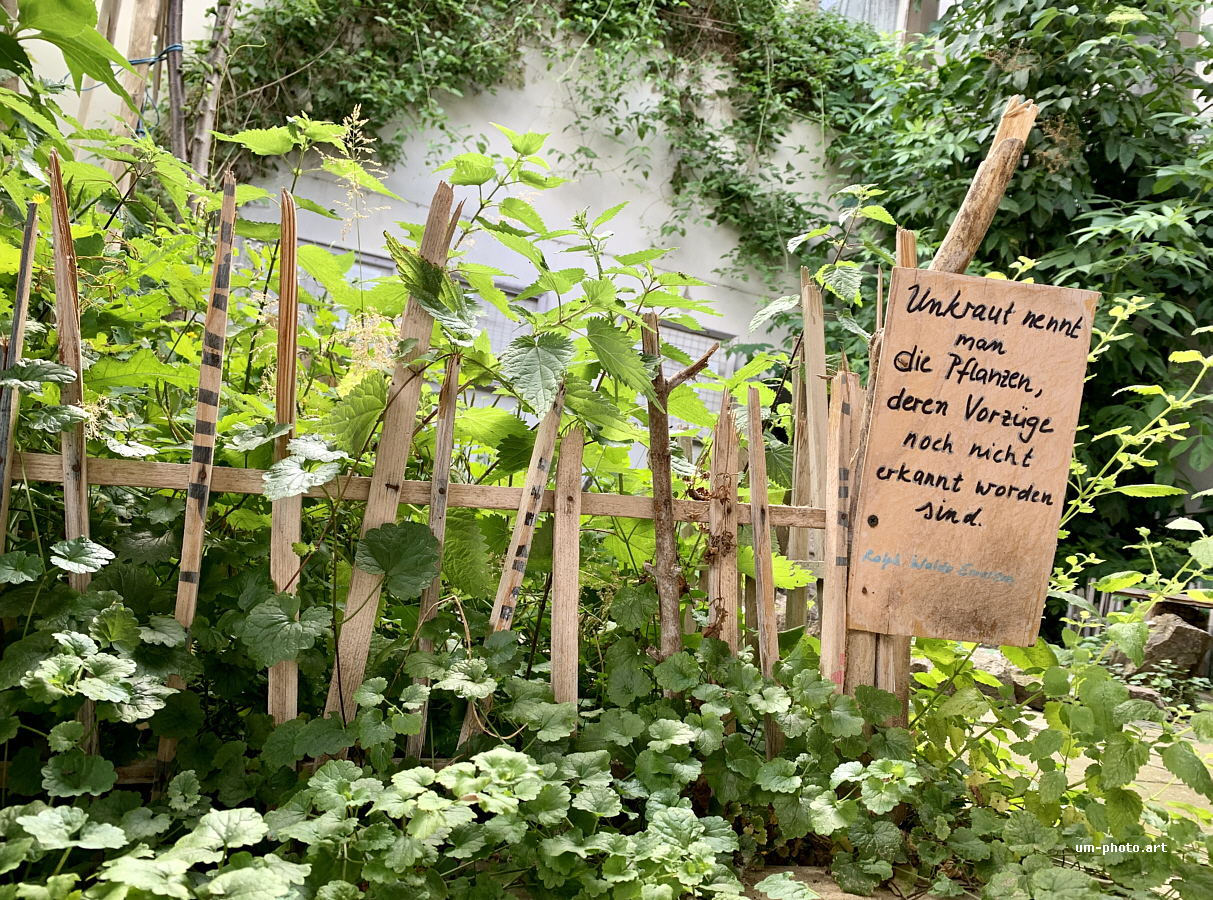 Unkraut nennt
man
die Pflanzen,
deren Vorzüge
noch nicht
erkannt worden
sind.
Ralph Waldo Emerson
um-photo.art